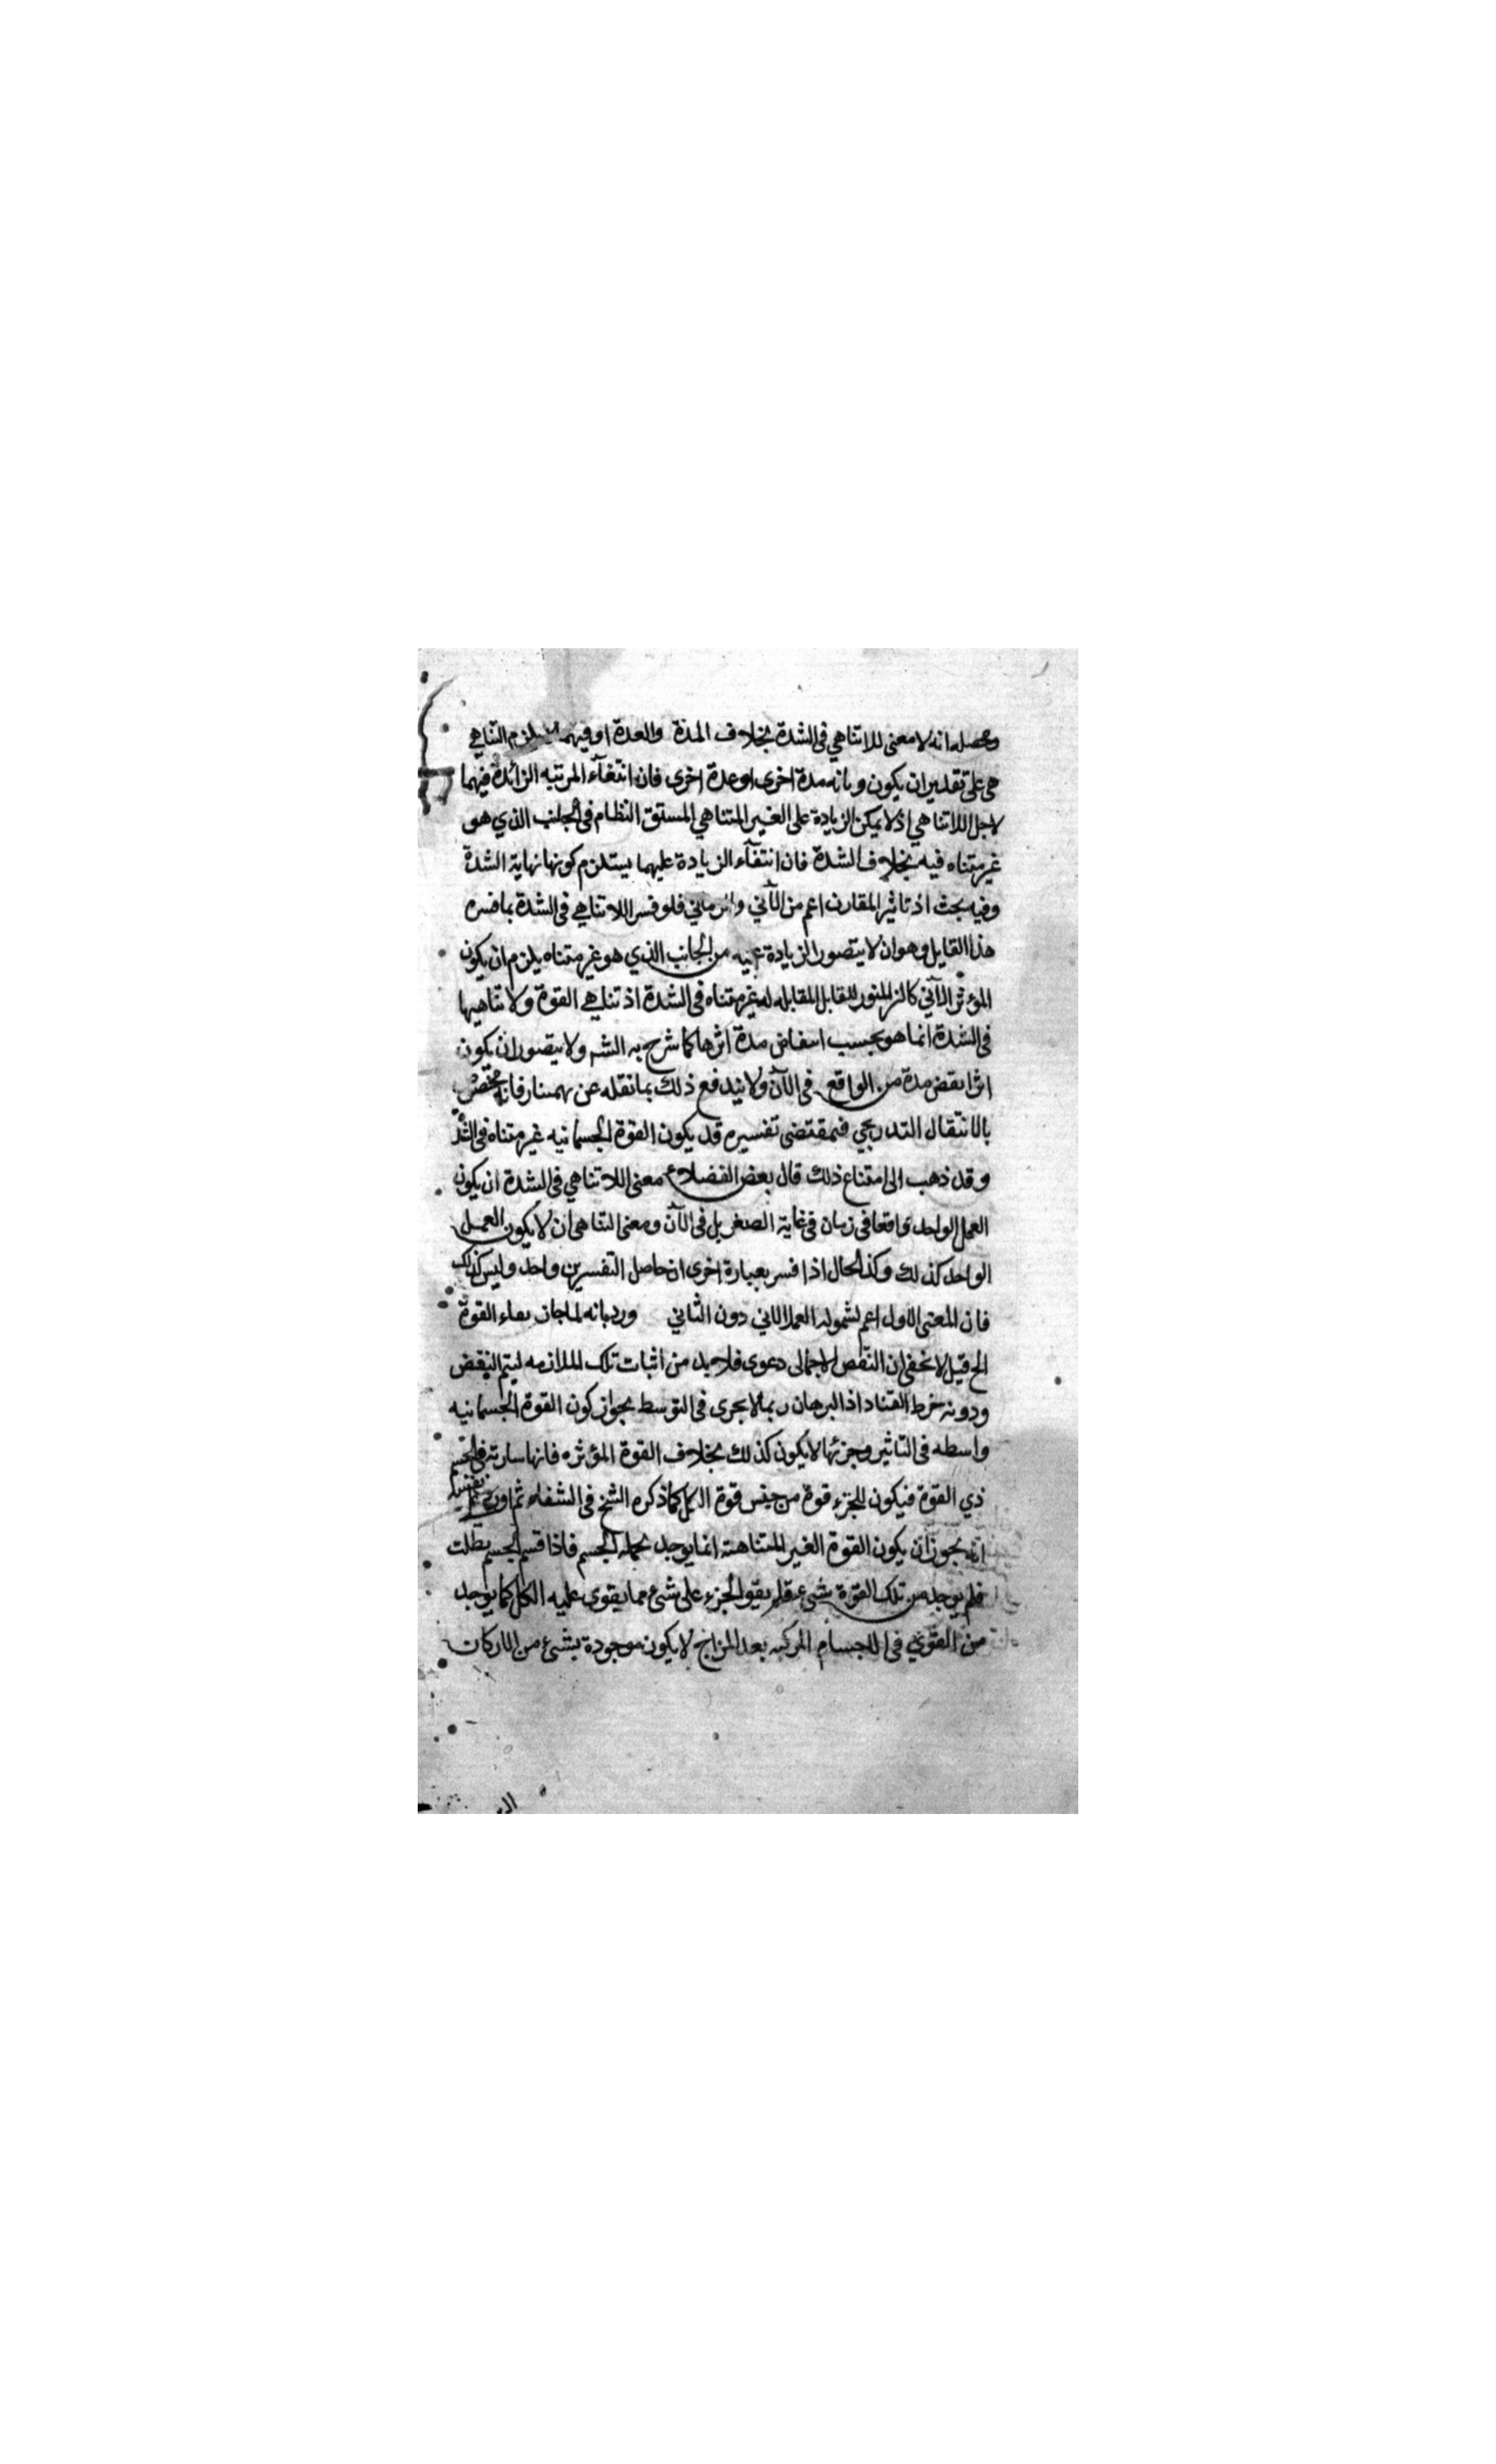 ومحصله انه لا معنى للاتناهي في الشدة بخلاف المدة والعدة او فيهما يلزم التناهي
هي على تقدير ان يكون وبانه مدة اخرى او عدة اخرى فان انتفآء المرتبه الزائدة فيهما
لاجل اللاتناهي اذ لا يمكن الزيادة على الغير المتناهي المتسق النظام في الجانب الذي هو
غير متناه فيه بخلاف الشدة فان انتفآء الزيادة عليهما يستلزم كونها نهاية الشدة
وفيه بحث اذ تاثير المقارن اعم من الآني والزماني فلو فسر اللاتناهي في الشدة بما فسره
هذا القايل وهو ان لا يتصور الزيادة عليه من الجانب الذي هو غير متناه يلزم ان يكون
المؤثر الآني المنور للقابل المقابل له غير متناه في الشدة اذ تناهي القوة ولا تناهيها
في الشدة انما هو بحسب مدة اثرها كما شرح به الشه ولا يتصور ان يكون
انقض مدة من الواقع في الآن ولا يندفع ذلك بما نقله عن بهمنيار فانه مختص
بالانتقال التدريجي فبمقتضى تفسيره قد يكون القوة الجسمانيه غير متناه في الشد
وقد ذهب الى امتناع ذلك قال بعض الفضلاء معنى اللاتناهي في الشدة ان يكون
العمل الواحد واقعا في زمان في غاية الصغر بل في الآن ومعنى التناهي ان لا يكون العمل
الواحد كذلك وكذا الحال اذا فسر بعبارة اخرى ان حاصل التفسيرين واحد وليس كذلك
فان المعنى الاول اعم لشموله العمل الاني دون الثاني ورد بانه لما جاز بقاء القوة
الخ قيل لا يخفى ان النقض الاجمالى دعوى فلا بد من اثبات تلك الملازمه ليتم النقض
ودونه خرط القتاد اذ البرهان ربما لا يجرى في التوسط بجواز كون القوة الجسمانيه
واسطه في التاثير وجزئها لا يكون كذلك بخلاف القوة المؤثره فانها سارية في الجسم
ذي القوة فيكون للجزء قوة من جنس قوة الكل كما ذكره الشيخ في الشفاء ثم اورد على نفسه
انه يجوز ان يكون القوة الغير المتناهية انما يوجد بجملة الجسم فاذا قسم الجسم بطلت
فلم يوجد من تلك القوة شىء فلم يقو الجزء على شىء مما يقوى عليه الكل كما يوجد
من القوي في الاجسام المركبه بعد المزاج لا يكون موجودة بشىء من الاركان